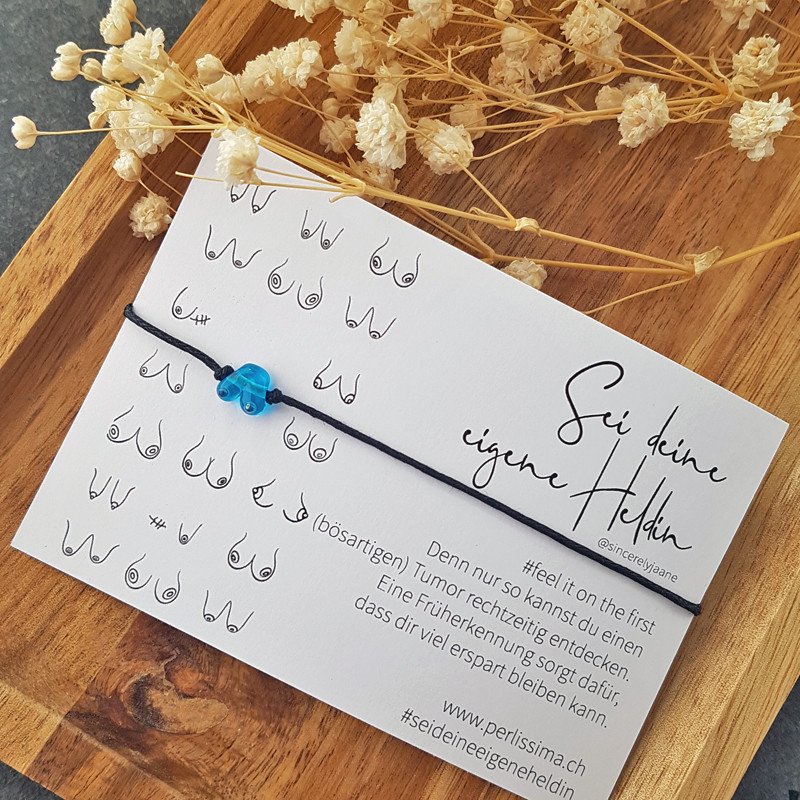 Sei deine
eigene Heldin
@sincerelyjaane
#feel it on the first
Denn nur so kannst du einen
(bösartigen) Tumor rechtzeitig entdecken.
Eine Früherkennung sorgt dafür,
dass dir viel erspart bleiben kann.
www.perlissima.ch
#seideineeigeneheldin